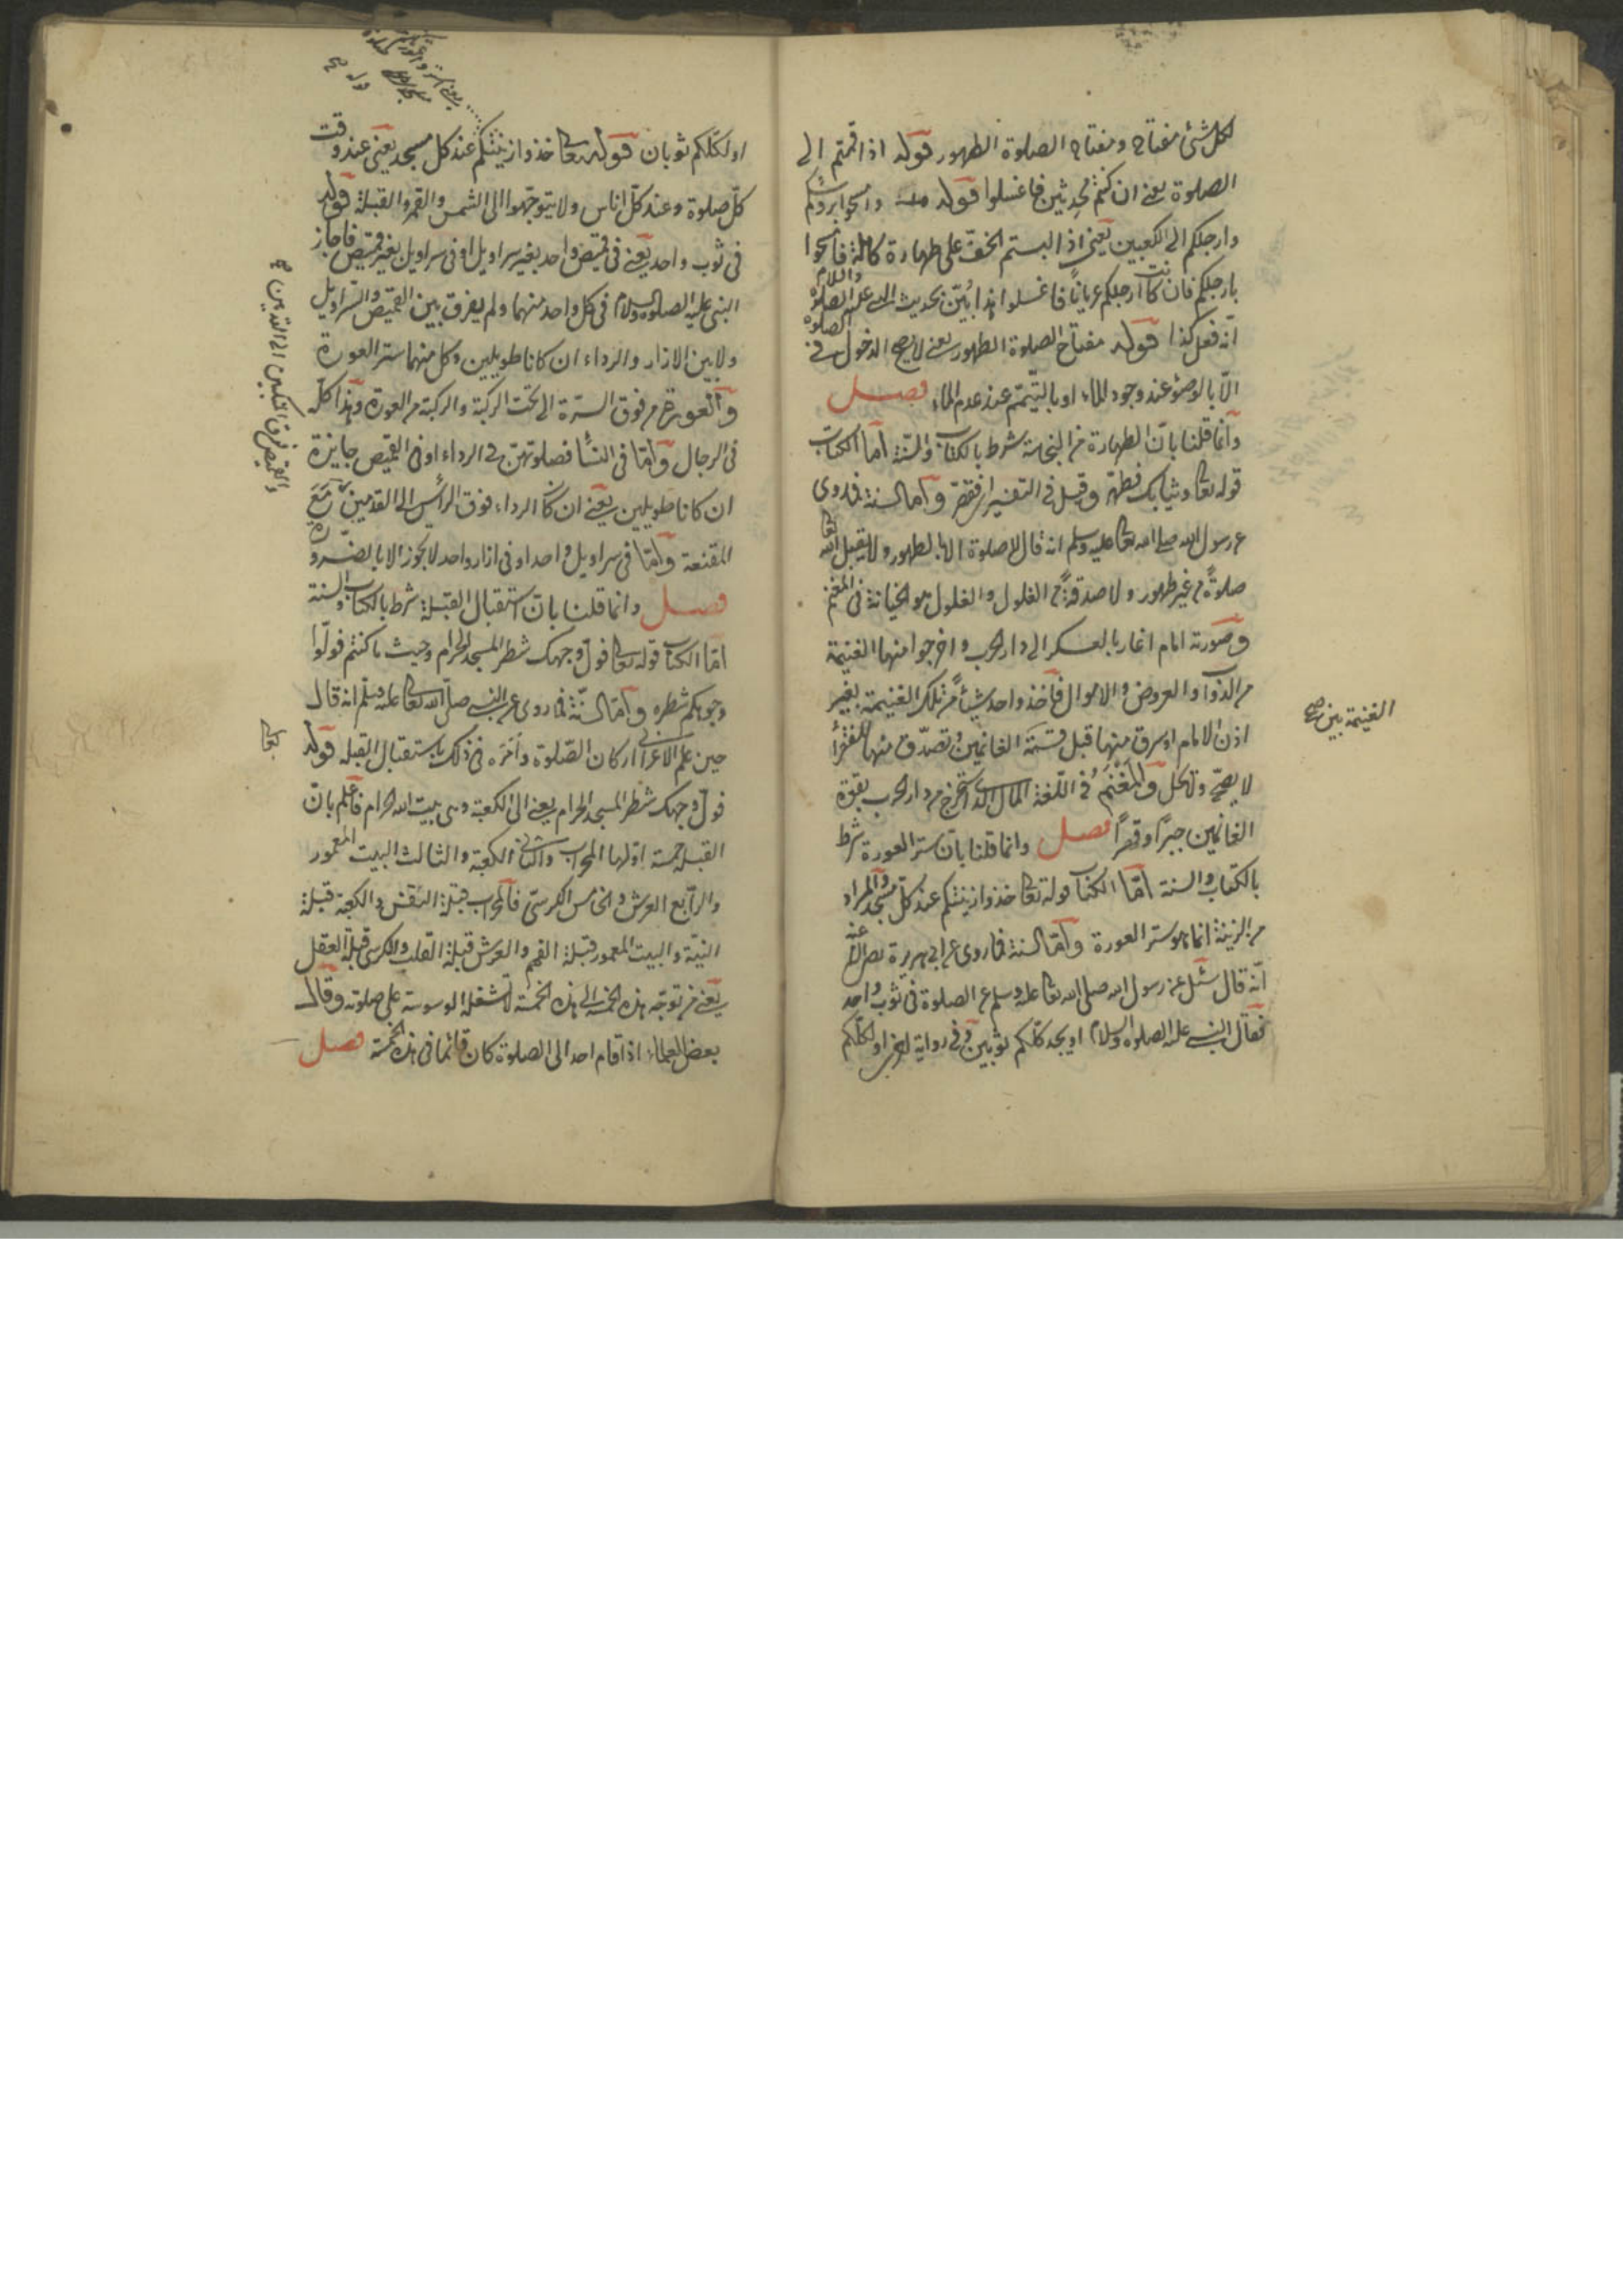 لكل شئ مفتاح ومفتاح الصلوة الطهور قوله اذا قمتم الى
الصلوة يعنى ان كنتم محدثين فاغسلوا قوله وامسحوا برؤسكم
وارجلكم الى الكعبين يعنى اذ البستم الخف على طهارة كاملة فامسحوا
بارجلكم فان كانت ارجلكم عريانا فاغسلوا بحديث النبى عليه الصلوة والسلام
انه فعل كذا قوله مفتاح الصلوة الطهور يعنى لا يصح الدخول فى الصلوة
الا بالوضوء عند وجود الماء او بالتيمم عند عدم الماء فصل
وانما قلنا بان الطهارة من النجاسة شرط بالكتاب والسنة اما الكتاب
قوله تعالى وثيابك فطهر وقيل فى التفسير اى فقصر واما السنة فما روى
عن رسول الله صلى الله تعالى عليه وسلم انه قال لا صلوة الا بالطهور ولا يقبل الله تعالى
صلوة من غير طهور ولا صدقة من الغلول والغلول هو الخيانة فى المغنم
وصورته امام اغار بالعسكر الى دار الحرب واخرجوا منها الغنيمة
من الدواب والعروض والاموال فاخذ واحد شيئا من تلك الغنيمة بغير
اذن الامام او سرق منها قبل قسمة الغانمين وتصدق منها للفقراء
لا يصح ولا يحل والمغنم فى اللغة المال الذى استخرج من دار الحرب بقوة
الغانمين جبرا وقهرا فصل وانما قلنا بان ستر العورة شرط
بالكتاب والسنة اما الكتاب قوله تعالى خذوا زينتكم عند كل مسجد والمراد
من الزينة انما هو ستر العورة واما السنة فما روى عن ابى هريرة رضى الله عنه
انه قال سئل عن رسول الله صلى الله تعالى عليه وسلم عن الصلوة فى ثوب واحد
فقال النبى عليه الصلوة والسلام او يجد كلكم ثوبين وفى رواية اخرى او لكلكم
الغنيمة بين صح
او لكلكم ثوبان قوله تعالى خذوا زينتكم عند كل مسجد يعنى عند وقت
كل صلوة وعند كل اناس ولا يتوجهوا الى الشمس والقمر والقبلة قوله
فى ثوب واحد يعنى فى قميص واحد بغير سراويل او فى سراويل بغير قميص فاجاز
النبى عليه الصلوة والسلام فى كل واحد منهما ولم يفرق بين القميص والسراويل
ولا بين الازار والرداء ان كانا طويلين وكل منهما ستر العورة
والعورة من فوق السرة الى تحت الركبة والركبة من العورة وهذا كله
فى الرجال واما فى النساء فصلوتهن فى الرداء او فى القميص جايزة
ان كانا طويلين يعنى ان كان الرداء فوق الرأس الى القدمين مع
المقنعة واما فى سراويل واحد او فى ازار واحد لا يجوز الا بالضرورة
فصل وانما قلنا بان استقبال القبلة شرط بالكتاب والسنة
اما الكتاب قوله تعالى فول وجهك شطر المسجد الحرام وحيث ما كنتم فولوا
وجوهكم شطره واما السنة فما روى عن النبى صلى الله تعالى عليه وسلم انه قال
حين علم الاعرابى اركان الصلوة وامره فى ذلك باستقبال القبلة قوله
فول وجهك شطر المسجد الحرام يعنى الى الكعبة وهى بيت الله الحرام فاعلم بان
القبلة خمسة اولها المحراب والثانى الكعبة والثالث البيت المعمور
والرابع العرش والخامس الكرسى فالمحراب قبلة النفس والكعبة قبلة
النية والبيت المعمور قبلة الفهم والعرش قبلة القلب والكرسى قبلة العقل
يعنى من توجه هذه الخمسة الى هذه الخمسة لا تشغله الوسوسة على صلوته وقال
بعض العلماء اذا قام احد الى الصلوة كان قائما فى هذه الخمسة فصل
والقميص فوق المنكبين الى القدمين صح
تعالى